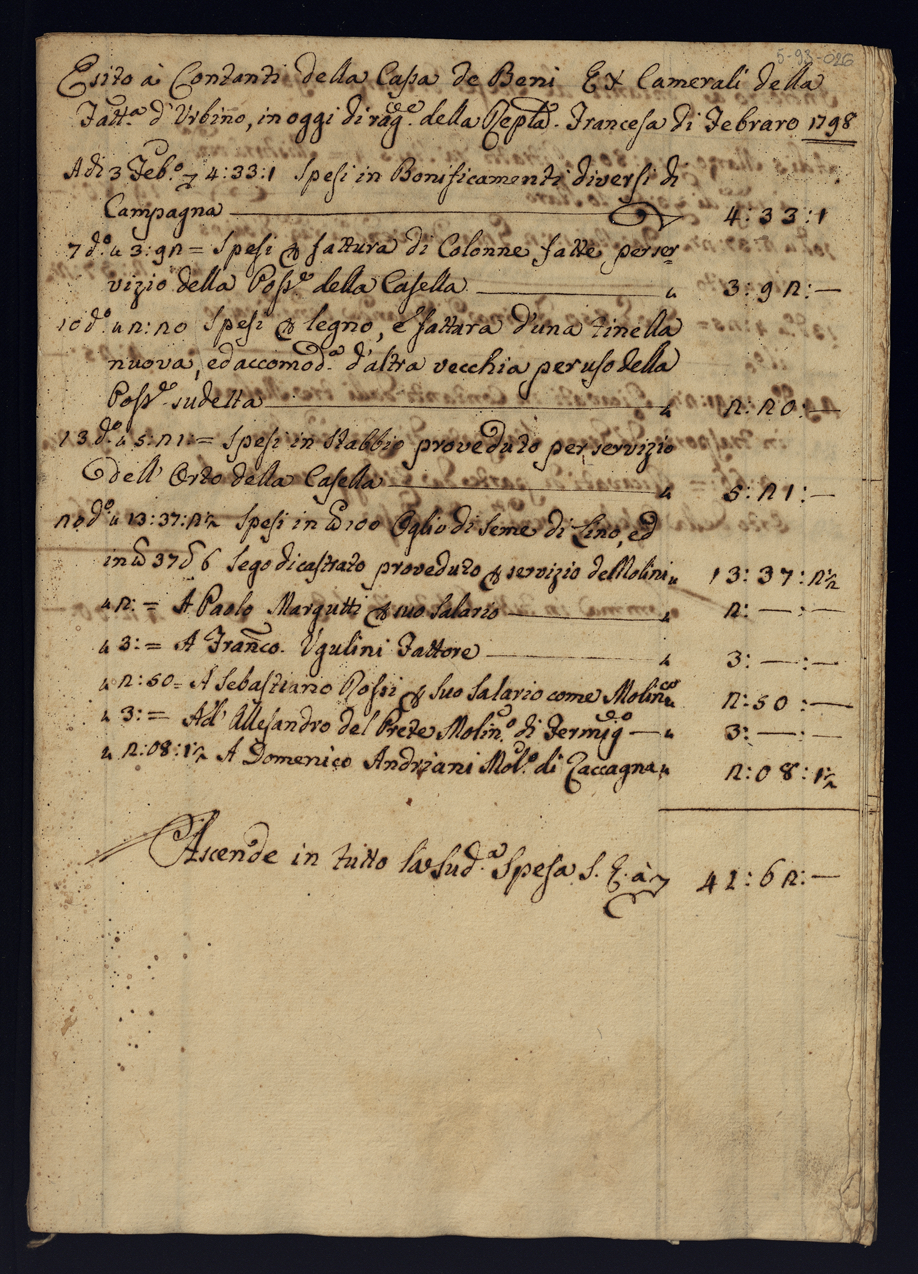 5-93-026
Esito à Contanti della Cassa de Beni Ex Camerali della
Fatt.a d'Urbino, in oggi di rag.e della Repla. Francesa di Febraro 1798
Adi 3 Feb.o 4:33:1 Spesi in Bonificamenti diversi di
Campagna 4:33:1
7 d.o " 3:92= Spesi p fattura di Colonne fatte per ser=
vizio della Poss.e della Casella " 3:92:—
10 d.o " 2:20 Spesi p legno, e fattura d'una tinella
nuova, ed accomod.a d'altra vecchia per uso della
Poss.e sudetta " 2:20:—
13 d.o " 5:21:= Spesi in Stabbio proveduto per servizio
dell'Orto della Casella " 5:21:—
20 d.o " 13:37:2½ Spesi in 100 Oglio di Seme di Lino, ed
in 37 6 Sego di castrato proveduto p servizio de Molini " 13:37:2½
" 2:= A Paolo Margutti p suo Salario " 2:—:—
" 3:= A Franco. Ugulini Fattore " 3:—:—
" 2:50= A Sebastiano Rossi p suo Salario come Molin.o " 2:50:—
" 3:= Ad Allesandro del Prete Molin.o di Fermig.o " 3:—:—
" 2:08:1½ A Domenico Andriani Mol.o di Zaccagna " 2:08:1½
Ascende in tutto la Sud.a Spesa S. E. à 41:62:—